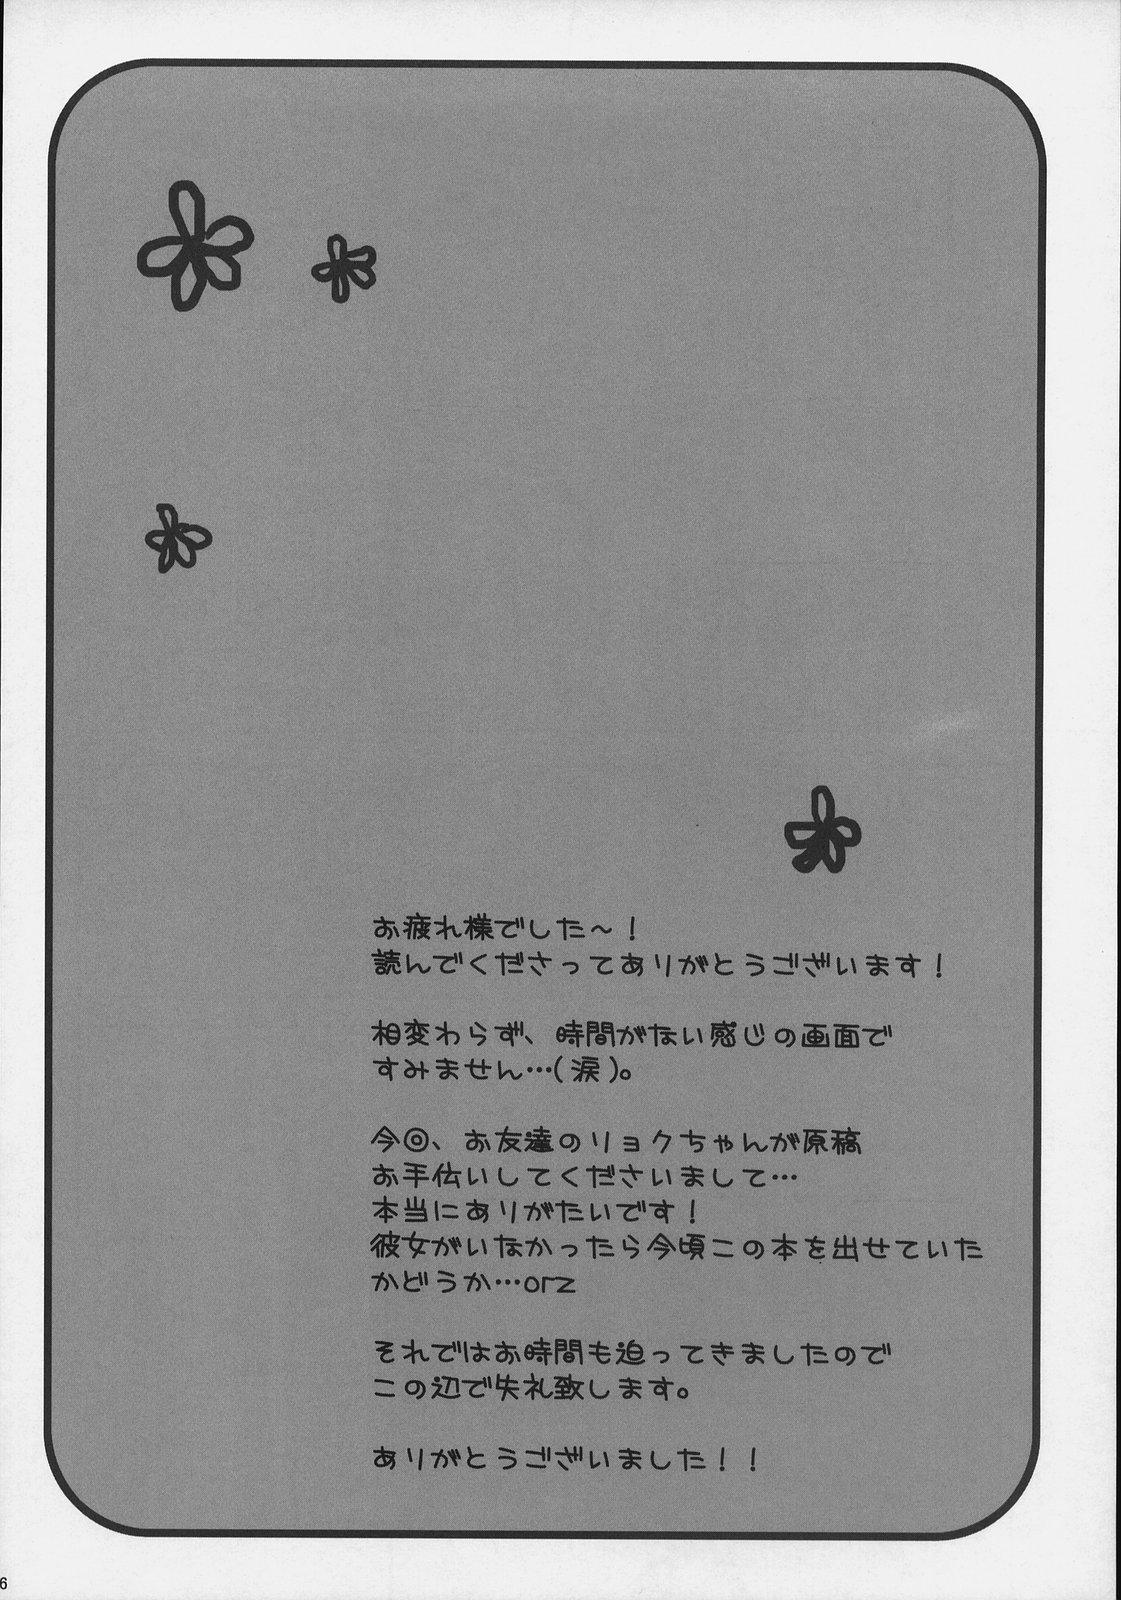 お疲れ様でした～！
読んでくださってありがとうございます！
相変わらず、時間がない感じの画面で
すみません…(涙)。
今回、お友達のリョクちゃんが原稿
お手伝いしてくださいまして…
本当にありがたいです！
彼女がいなかったら今頃この本を出せていた
かどうか…orz
それではお時間も迫ってきましたので
この辺で失礼致します。
ありがとうございました！！
6